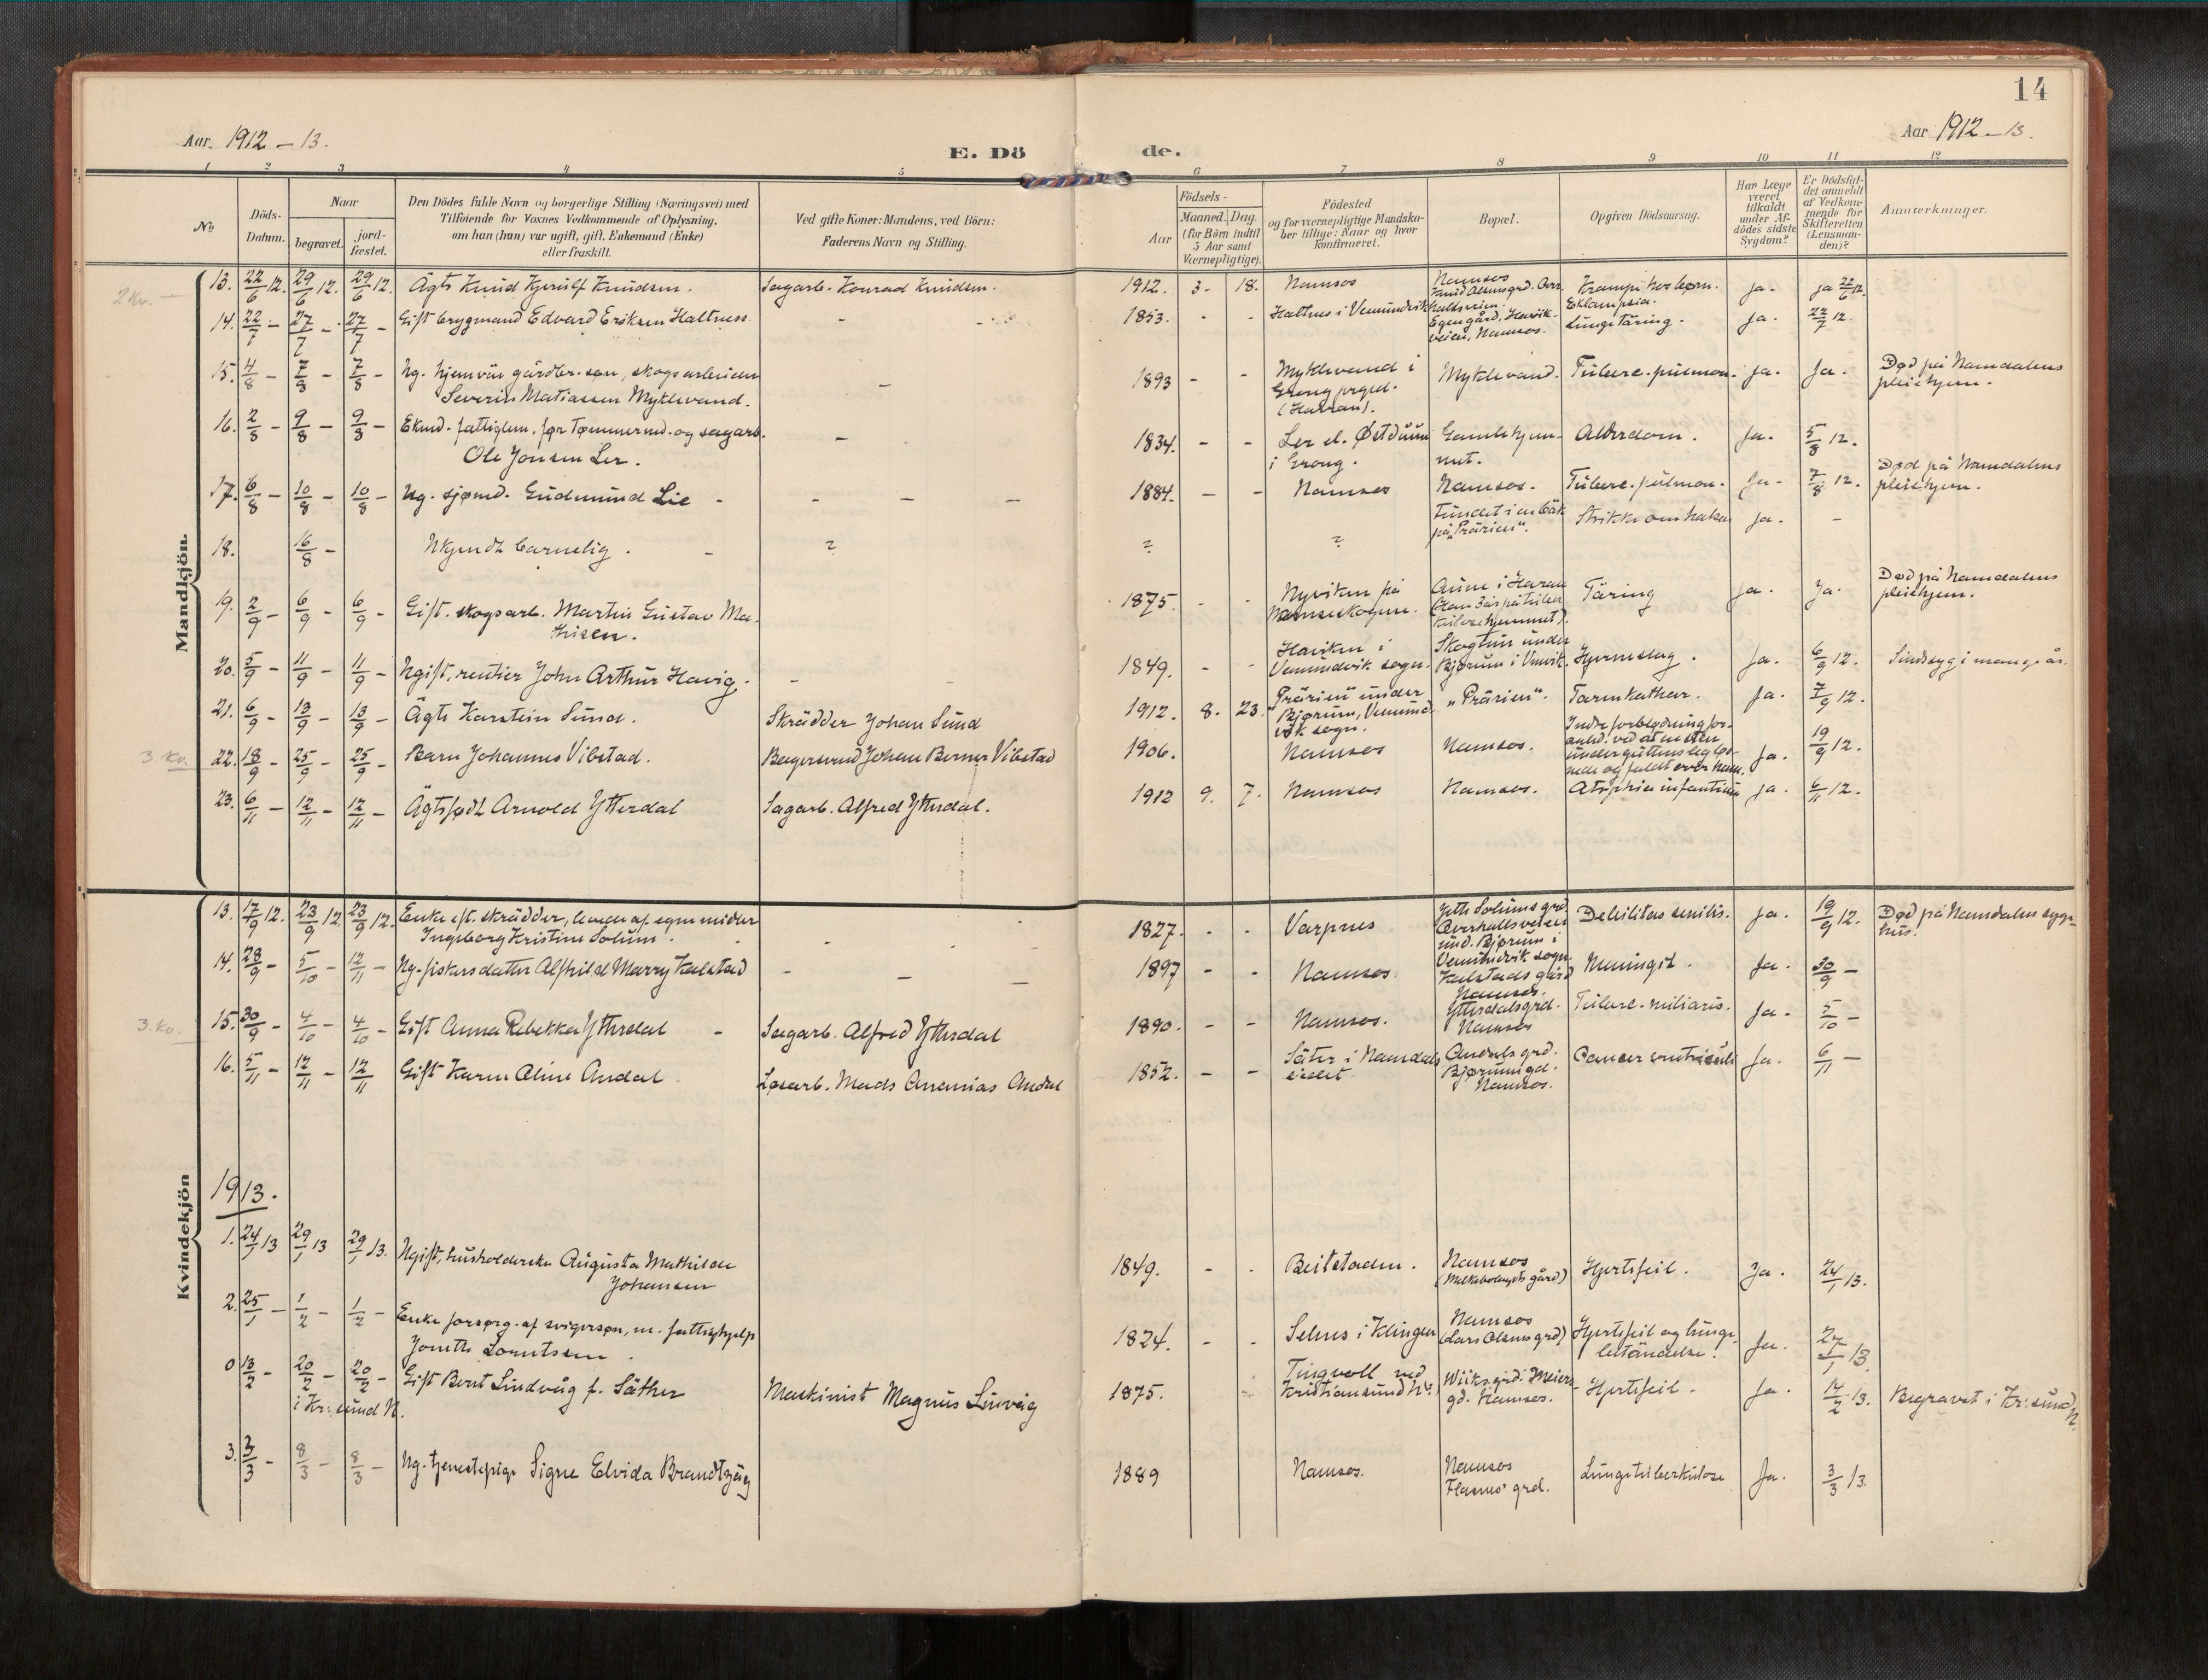 14
Aar. 1912 – 13.
E. Dö de.
Aar 1912 – 13.
1 2 3 4 5 6 7 8 9 10 11 12
No
Döds-Datum.
Naar
begravet.
jord-fæstet.
Den Dödes fulde Navn og borgerlige Stilling (Næringsvei) med
Tilföiende for Voxnes Vedkommende af Oplysning,
om han (hun) var ugift, gift, Enkemand (Enke)
eller fraskilt.
Ved gifte Koner: Mandens, ved Börn:
Faderens Navn og Stilling.
Födsels-
Aar
Maaned. Dag.
(for Börn indtil
5 Aar samt
Værnepligtige).
Födested
og for værnepligtige Mandska-
ber tillige: Naar og hvor
konfirmeret.
Bopæl.
Opgiven Dödsaarsag.
Har Læge
været
tilkaldt
under Af-
dödes sidste
Sygdom?
Er Dödsfal-
det anmeldt
af Vedkom-
mende for
Skifteretten
(Lensman-
den)?
Anmærkninger.
Mandkjön.
2 kv. –
13. 22/6 12. 29/6 12. 29/6 12. Ägte Knud Kjerulf Knudsen. Sagarb. Konrad Knudsen. 1912. 3. 18. Namsos Namsos Krampe hos børn. Eklampsia. Ja. ja 22/6 12.
14. 22/7 – 27/7 – 27/7 – Gift brygmand Edvard Eriksen Haltness. – – 1853. - - Haltnes i Vemundvik Egen gård, Havik-
veien, Namsos. Lungetäring. Ja. 22/7 12.
15. 4/8 – 7/8 – 7/8 – Ug. hjemvär. gårdbr. søn, skogsarbeider
Severin Matiassen Myklevand. – 1893 - - Myklevand i
Grong prgjeld.
(Harran). Myklevand. Tuberc. pulmon. ja. Ja. Død på Namdalens
pleiehjem.
16. 2/8 – 9/8 – 9/8 – Ekmd. fattiglem. før tømmermd. og sagarb.
Ole Jonsen Ler. – 1834. - - Ler el. Østduun
i Grong. Gamlehjem-
met. Alderdom. Ja. 5/8 12.
17. 6/8 – 10/8 – 10/8 – Ug. sjømd. Gudmund Lie – – – – 1884. - - Namsos Namsos. Tuberc. pulmon. Ja. 7/8 12. Død på Namdalens
pleiehjem.
18. 16/8 – Ukjendt barnelig. – ? ? ? Fundet i en bäk
på „Prärien“. Strikke om halsen Ja. –
19. 2/9 – 6/9 – 6/9 – Gift. skogsarb. Martin Gustav Ma-
thisen. 1875. - - Nyviken på
Namsskogen. Aune i Haran Täring Ja. Ja. Død på Namdalens
pleiehjem.
20. 5/9 – 11/9 – 11/9 – Ugift, rentier John Arthur Havig. – – 1849. - - Haviken i
Vemundvik sogn. Skogtun under
Bjørum i Vmvik. Hjerneslag. Ja. 6/9 12. Sindssyg i mange år.
21. 6/9 – 13/9 – 13/9 – Ägte Karstein Sund. Skrädder Johan Sund 1912. 8. 23. „Prärien“ under
Bjørum, Vemund-
vik sogn. „Prärien“. Tarmkathar. Ja. 7/9 12.
3. kv.
22. 18/9 – 25/9 – 25/9 – Barn Johannes Vibstad. Bagersvend Johan Berner Vibstad 1906. Namsos Namsos. Indre forblødning for-
anled. ved at en sten
under guttens leg løs-
nede og faldt over ham. Ja. 19/9 12.
23. 6/11 – 12/11 – 12/11 – Ägtefødt Arnold Ytterdal Sagarb. Alfred Ytterdal. 1912 9. 7. Namsos Namsos. Atrophia infantum ja. 6/11 12.
Kvindekjön
13. 17/9 12. 23/9 12. 23/9 12. Enke eft. skrädder, levede af egne midler
Ingeborg Kristine Solum. - - - 1827. - - Varpnes Jetts Solums grd.
Overhallsveien
und. Bjørum i
Vemundvik sogn. Debilitas senilis. Ja. 19/9 12. Død på Namdalens syge-
hus.
14. 28/9 – 5/10 – 12/11 – Ug. fiskers datter Alfhild Marry Kalstad – – – 1897 - - Namsos. Kalstads gård
Namsos. Meningit. Ja. 30/9 –
3. kv.
15. 30/9 – 4/10 – 4/10 – Gift Anna Rebekka Ytterdal – Sagarb. Alfred Ytterdal 1890. - - Namsos. Ytterdalsgrd.
Namsos Tuberc. miliaris. Ja. 5/10 –
16. 5/11 – 12/11 – 12/11 Gift Karen Oline Andal Løsarb. Mads Ananias Andal 1852. - - Säter i Namdals-
eidet Andals grd.
Bjørumgd.
Namsos. Cancer ventriculi Ja. 6/11 –
1913.
1. 24/1 13 29/1 13 29/1 13. Ugift, husholderske Augusta Mathilde
Johansen 1849. - - Beitstaden. Namsos Hjertefeil. Ja. 24/1 13.
2. 25/1 – 1/2 – 1/2 – Enke forsørg. af svigersøn, m. fattighjelp
Jonette Lorntsen. 1824. - - Selnes i Klingen Namsos
(Lars Olsens grd) Hjertefeil og lunge-
betändelse. Ja. 27/1 13.
0 13/2 – 20/2 – 20/2 – Gift Berit Lindvåg f. Säther Maskinist Magnus Linvåg 1875. - Tingvoll ved
Kristiansund N. Wiiks grd. Meieri-
gd. Namsos. Hjertefeil. Ja. 14/2 13. Begravet i Kr:sund
N.
i Kr:sund N.
3. 3/3 – 8/3 – 8/3 – Ug. tjenestepige Signe Edvida Brandtzåg 1889 Namsos. Namsos
grd. Lungetuberkulose Ja. 3/3 13.